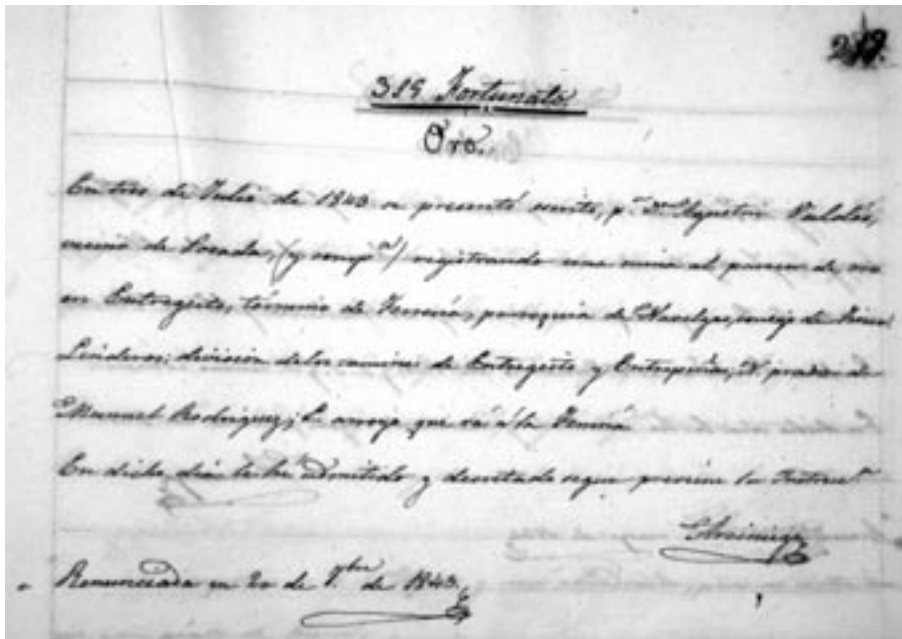 319 Fortunata
Oro.
En tres de Julio de 1843 se presentó escrito, p.r D.n Agustin
vecino de Posada, (y comp.a) registrando una mina al parecer de oro
en Entregesto, término de parroquia de Navelgas, concejo de
Linderos: division de los caminos de Entregesto y N prados de
Manuel Rodriguez; arroyo que vá á la
En dicho dia le he admitido y decretado segun previene la Instruc.n
Renunciada en 20 de 7.bre de 1843.